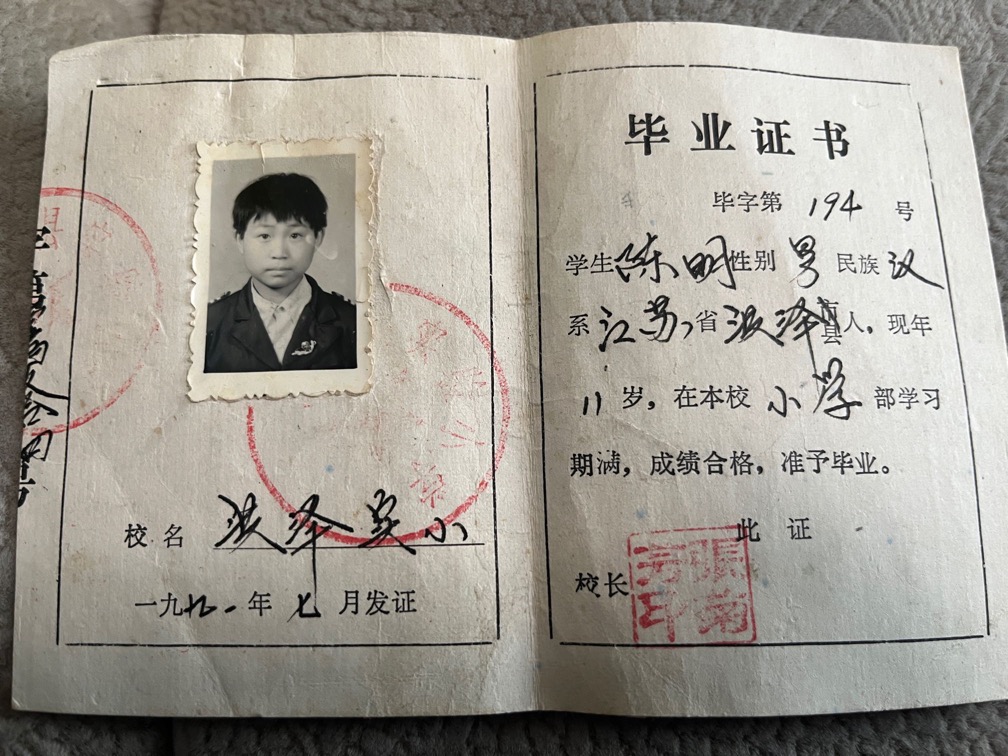 校名 洪泽实小
一九九一年七月发证
毕业证书
毕字第 194 号
学生 陈明 性别 男 民族 汉
系 江苏 省 洪泽 市县人，现年
11 岁，在本校 小学 部学习
期满，成绩合格，准予毕业。
此证
校长